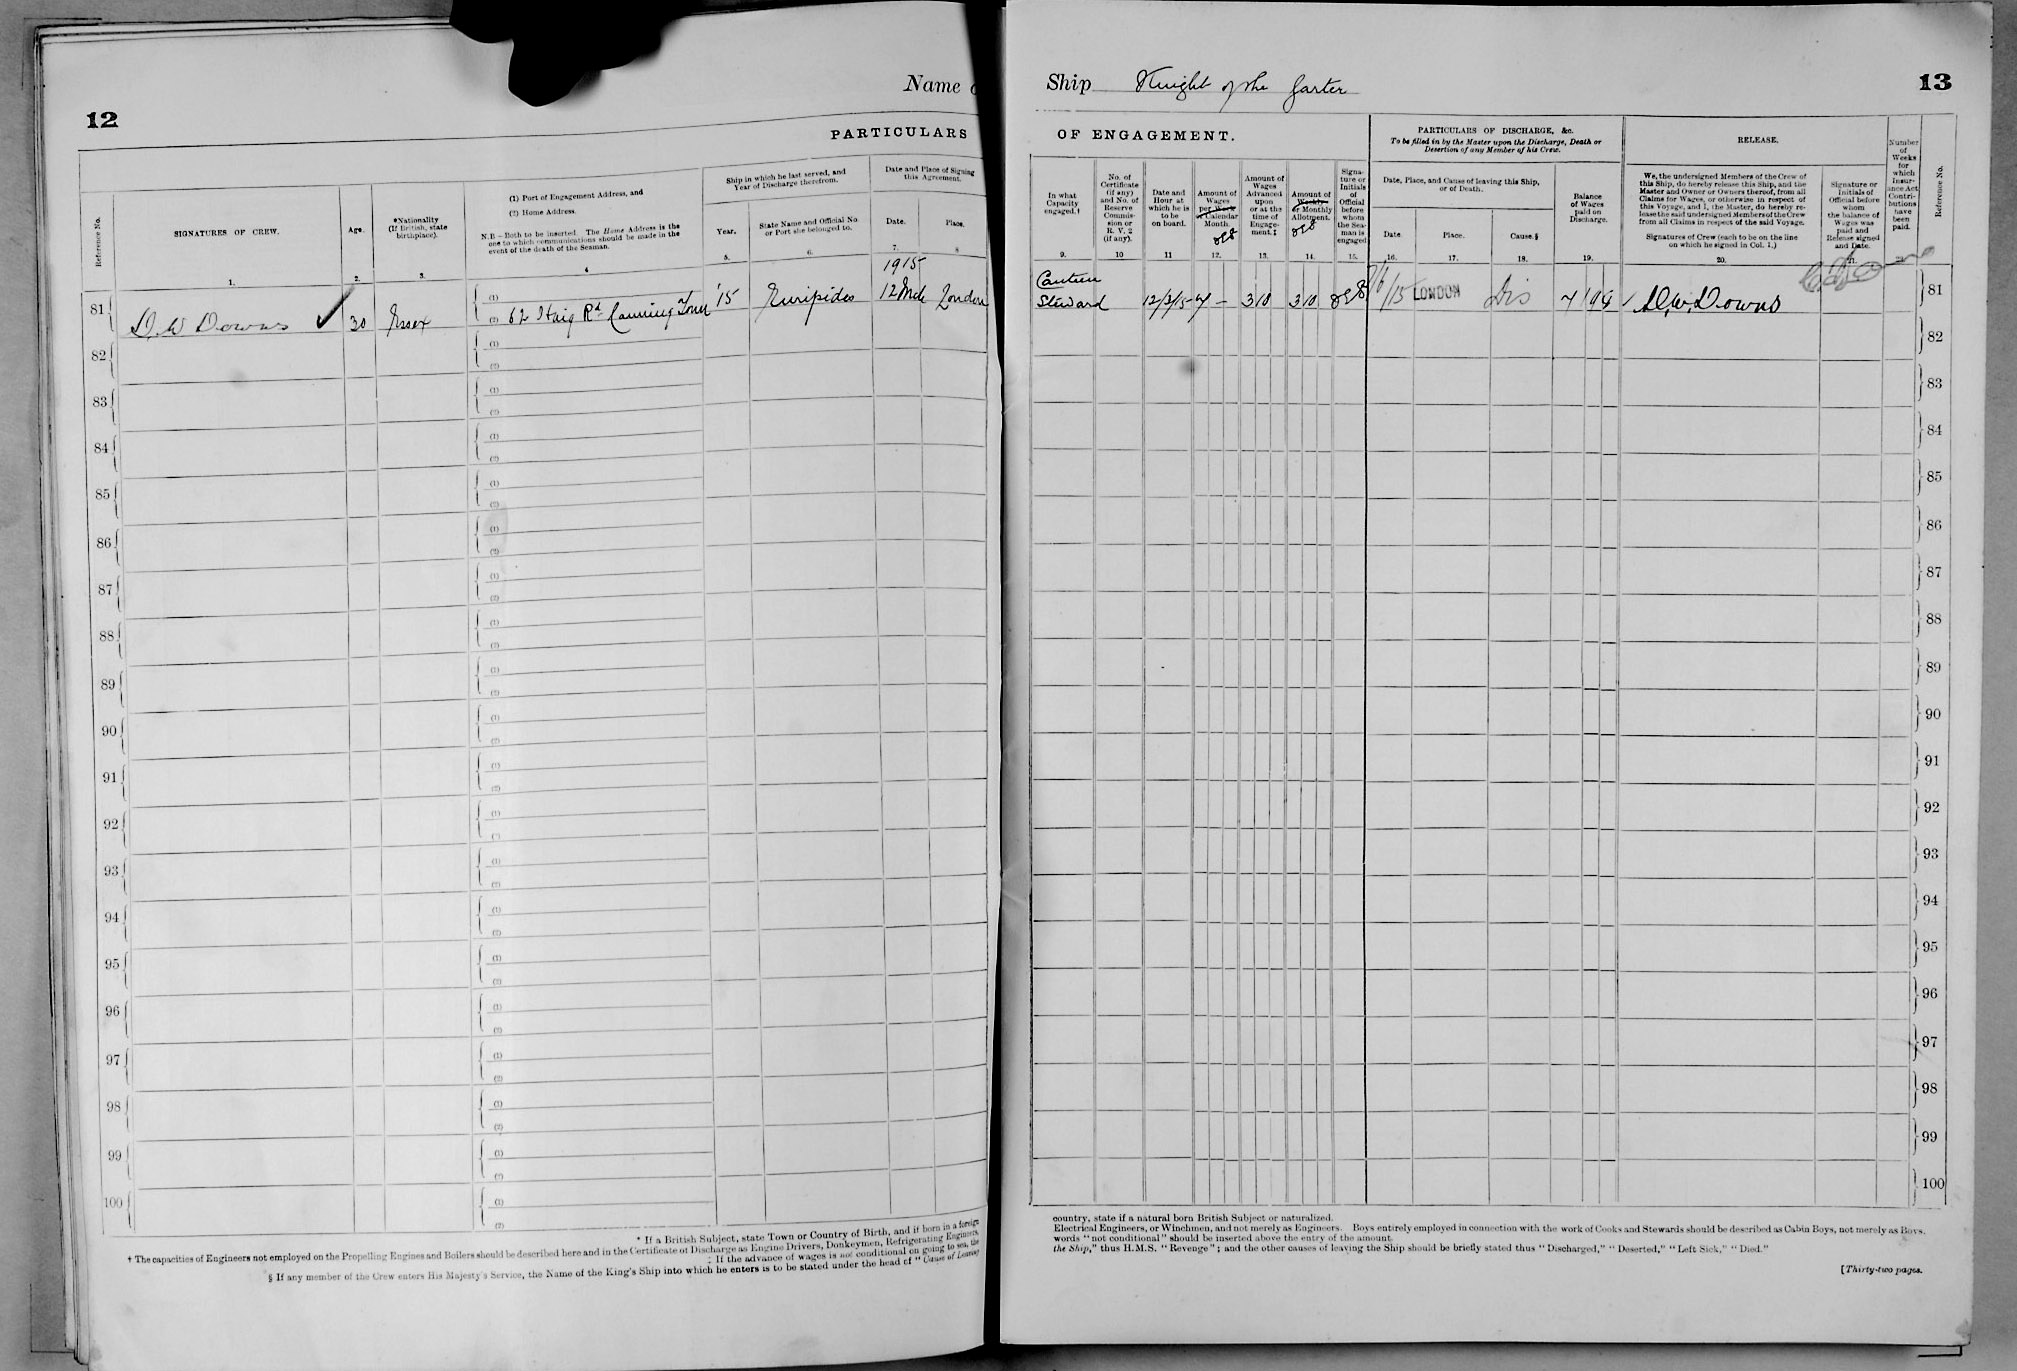 12
Name
PARTICULARS
Reference No.
SIGNATURES OF CREW.
Age.
*Nationality
(If British, state
birthplace).
(1) Port of Engagement Address, and
(2) Home Address.
N.B.—Both to be inserted. The Home Address is the
one to which communications should be made in the
event of the death of the Seaman.
Ship in which he last served, and
Year of Discharge therefrom.
Year.
State Name and Official No.
or Port she belonged to.
Date and Place of Signing
this Agreement.
Date.
Place.
1.
2.
3.
4
5.
6.
7.
8
1915
81
D. W Downs
30
Essex
(1)
(2) 62 Haig Rd Canning Town
'15
Euripides
12 Mch
London
82
(1)
(2)
83
(1)
(2)
84
(1)
(2)
85
(1)
(2)
86
(1)
(2)
87
(1)
(2)
88
(1)
(2)
89
(1)
(2)
90
(1)
(2)
91
(1)
(2)
92
(1)
93
(1)
(2)
94
(1)
(2)
95
(1)
(2)
96
(1)
(2)
97
(1)
(2)
98
(1)
(2)
99
(1)
(2)
100
(1)
(2)
* If a British Subject, state Town or Country of Birth, and if born in a foreign
† The capacities of Engineers not employed on the Propelling Engines and Boilers should be described here and in the Certificate of Discharge as Engine Drivers, Donkeymen, Refrigerating Engineers,
‡ If the advance of wages is not conditional on going to sea, the
§ If any member of the Crew enters His Majesty's Service, the Name of the King's Ship into which he enters is to be stated under the head of "Cause of Leaving
Ship Knight of the Garter
13
OF ENGAGEMENT.
PARTICULARS OF DISCHARGE, &c.
To be filled in by the Master upon the Discharge, Death or
Desertion of any Member of his Crew.
RELEASE.
In what
Capacity
engaged.†
No. of
Certificate
(if any)
and No. of
Reserve
Commis-
sion or
R. V. 2
(if any).
Date and
Hour at
which he is
to be
on board.
Amount of
Wages
per Week
or Calendar
Month.
Amount of
Wages
Advanced
upon
or at the
time of
Engage-
ment.‡
Amount of
Weekly
or Monthly
Allotment.
Signa-
ture or
Initials
of
Official
before
whom
the Sea-
man is
engaged
Date, Place, and Cause of leaving this Ship,
or of Death.
Date.
Place.
Cause.§
Balance
of Wages
paid on
Discharge.
We, the undersigned Members of the Crew of
this Ship, do hereby release this Ship, and the
Master and Owner or Owners thereof, from all
Claims for Wages, or otherwise in respect of
this Voyage, and I, the Master, do hereby re-
lease the said undersigned Members of the Crew
from all Claims in respect of the said Voyage.
Signatures of Crew (each to be on the line
on which he signed in Col. 1.)
Signature or
Initials of
Official before
whom
the balance of
Wages was
paid and
Release signed
and Date.
Number
of
Weeks
for
which
Insur-
ance Act
Contri-
butions
have
been
paid.
Reference No.
9.
10
11
12.
13.
14.
15.
16.
17.
18.
19.
20.
21.
Canteen
Steward
12/3/15
4 –
3 10
3 10
LONDON
Dis
D. W. Downs
81
82
83
84
85
86
87
88
89
90
91
92
93
94
95
96
97
98
99
100
country, state if a natural born British Subject or naturalized.
Electrical Engineers, or Winchmen, and not merely as Engineers. Boys entirely employed in connection with the work of Cooks and Stewards should be described as Cabin Boys, not merely as Boys.
words "not conditional" should be inserted above the entry of the amount.
the Ship," thus H.M.S. "Revenge"; and the other causes of leaving the Ship should be briefly stated thus "Discharged," "Deserted," "Left Sick," "Died."
[Thirty-two pages.